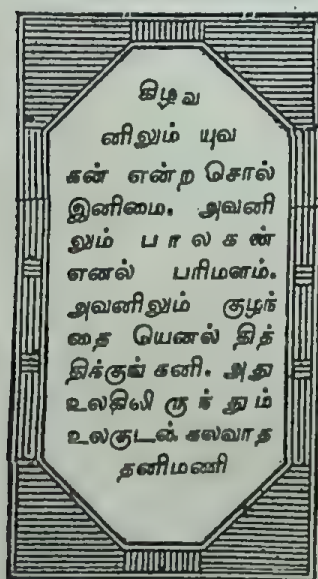 கிழவ
னிலும் யுவ
கன் என்ற சொல்
இனிமை. அவனி
லும் பாலகன்
எனல் பரிமளம்.
அவனிலும் குழந்
தை யெனல் தித்
திக்குங் கனி. அது
உலகிலி ருந்தும்
உலகுடன் கலவாத
தனிமணி